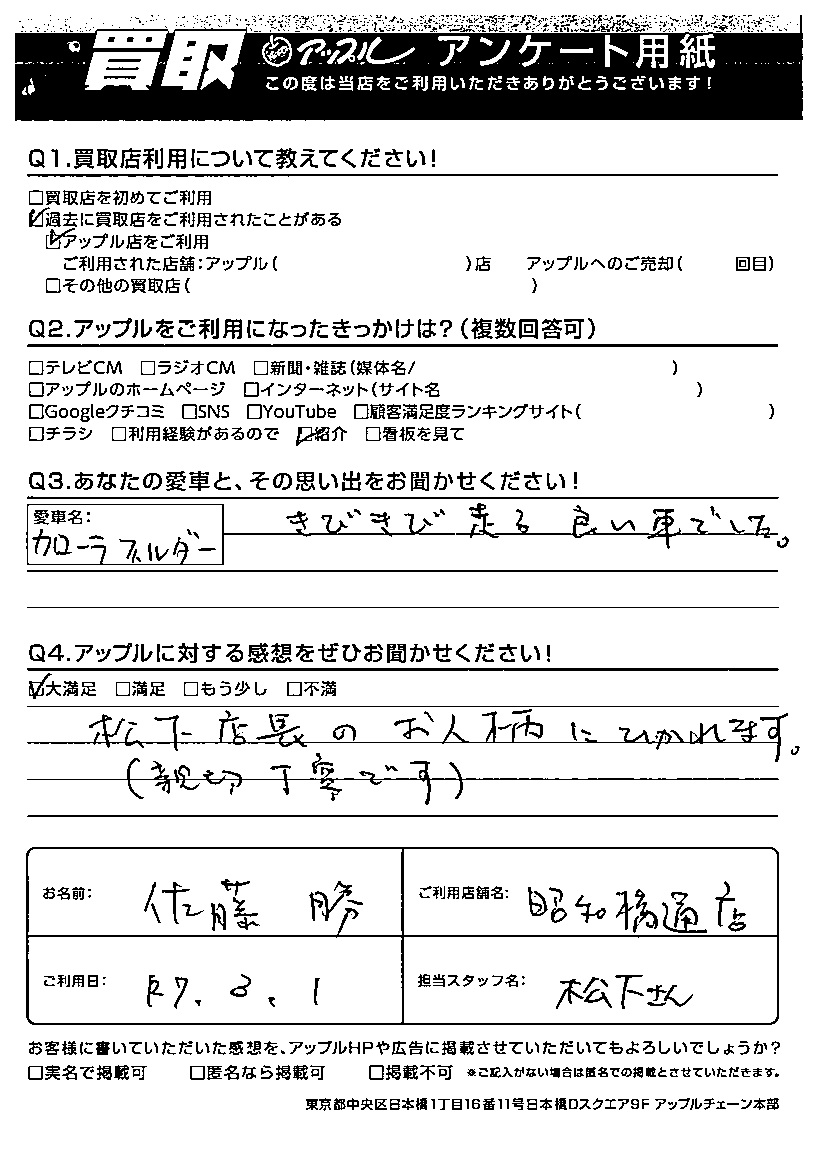 買取 アップル アンケート用紙
この度は当店をご利用いただきありがとうございます！
Q1.買取店利用について教えてください！
□買取店を初めてご利用
☑過去に買取店をご利用されたことがある
☑アップル店をご利用
ご利用された店舗：アップル（　　　）店　アップルへのご売却（　　　回目）
□その他の買取店（　　　）
Q2.アップルをご利用になったきっかけは？（複数回答可）
□テレビCM □ラジオCM □新聞・雑誌（媒体名/　　　）
□アップルのホームページ □インターネット（サイト名　　　）
□Googleクチコミ □SNS □YouTube □顧客満足度ランキングサイト（　　　）
□チラシ □利用経験があるので ☑紹介 □看板を見て
Q3.あなたの愛車と、その思い出をお聞かせください！
愛車名：
カローラフィルダー
きびきび走る良い車でした。
Q4.アップルに対する感想をぜひお聞かせください！
☑大満足 □満足 □もう少し □不満
松下店長のお人柄にひかれてます。
（親切丁寧です）
お名前： 佐藤 勝
ご利用店舗名： 昭和橋通店
ご利用日： R7.3.1
担当スタッフ名： 松下さん
お客様に書いていただいた感想を、アップルHPや広告に掲載させていただいてもよろしいでしょうか？
□実名で掲載可 □匿名なら掲載可 □掲載不可 ※ご記入がない場合は匿名での掲載とさせていただきます。
東京都中央区日本橋1丁目16番11号日本橋Dスクエア9F アップルチェーン本部